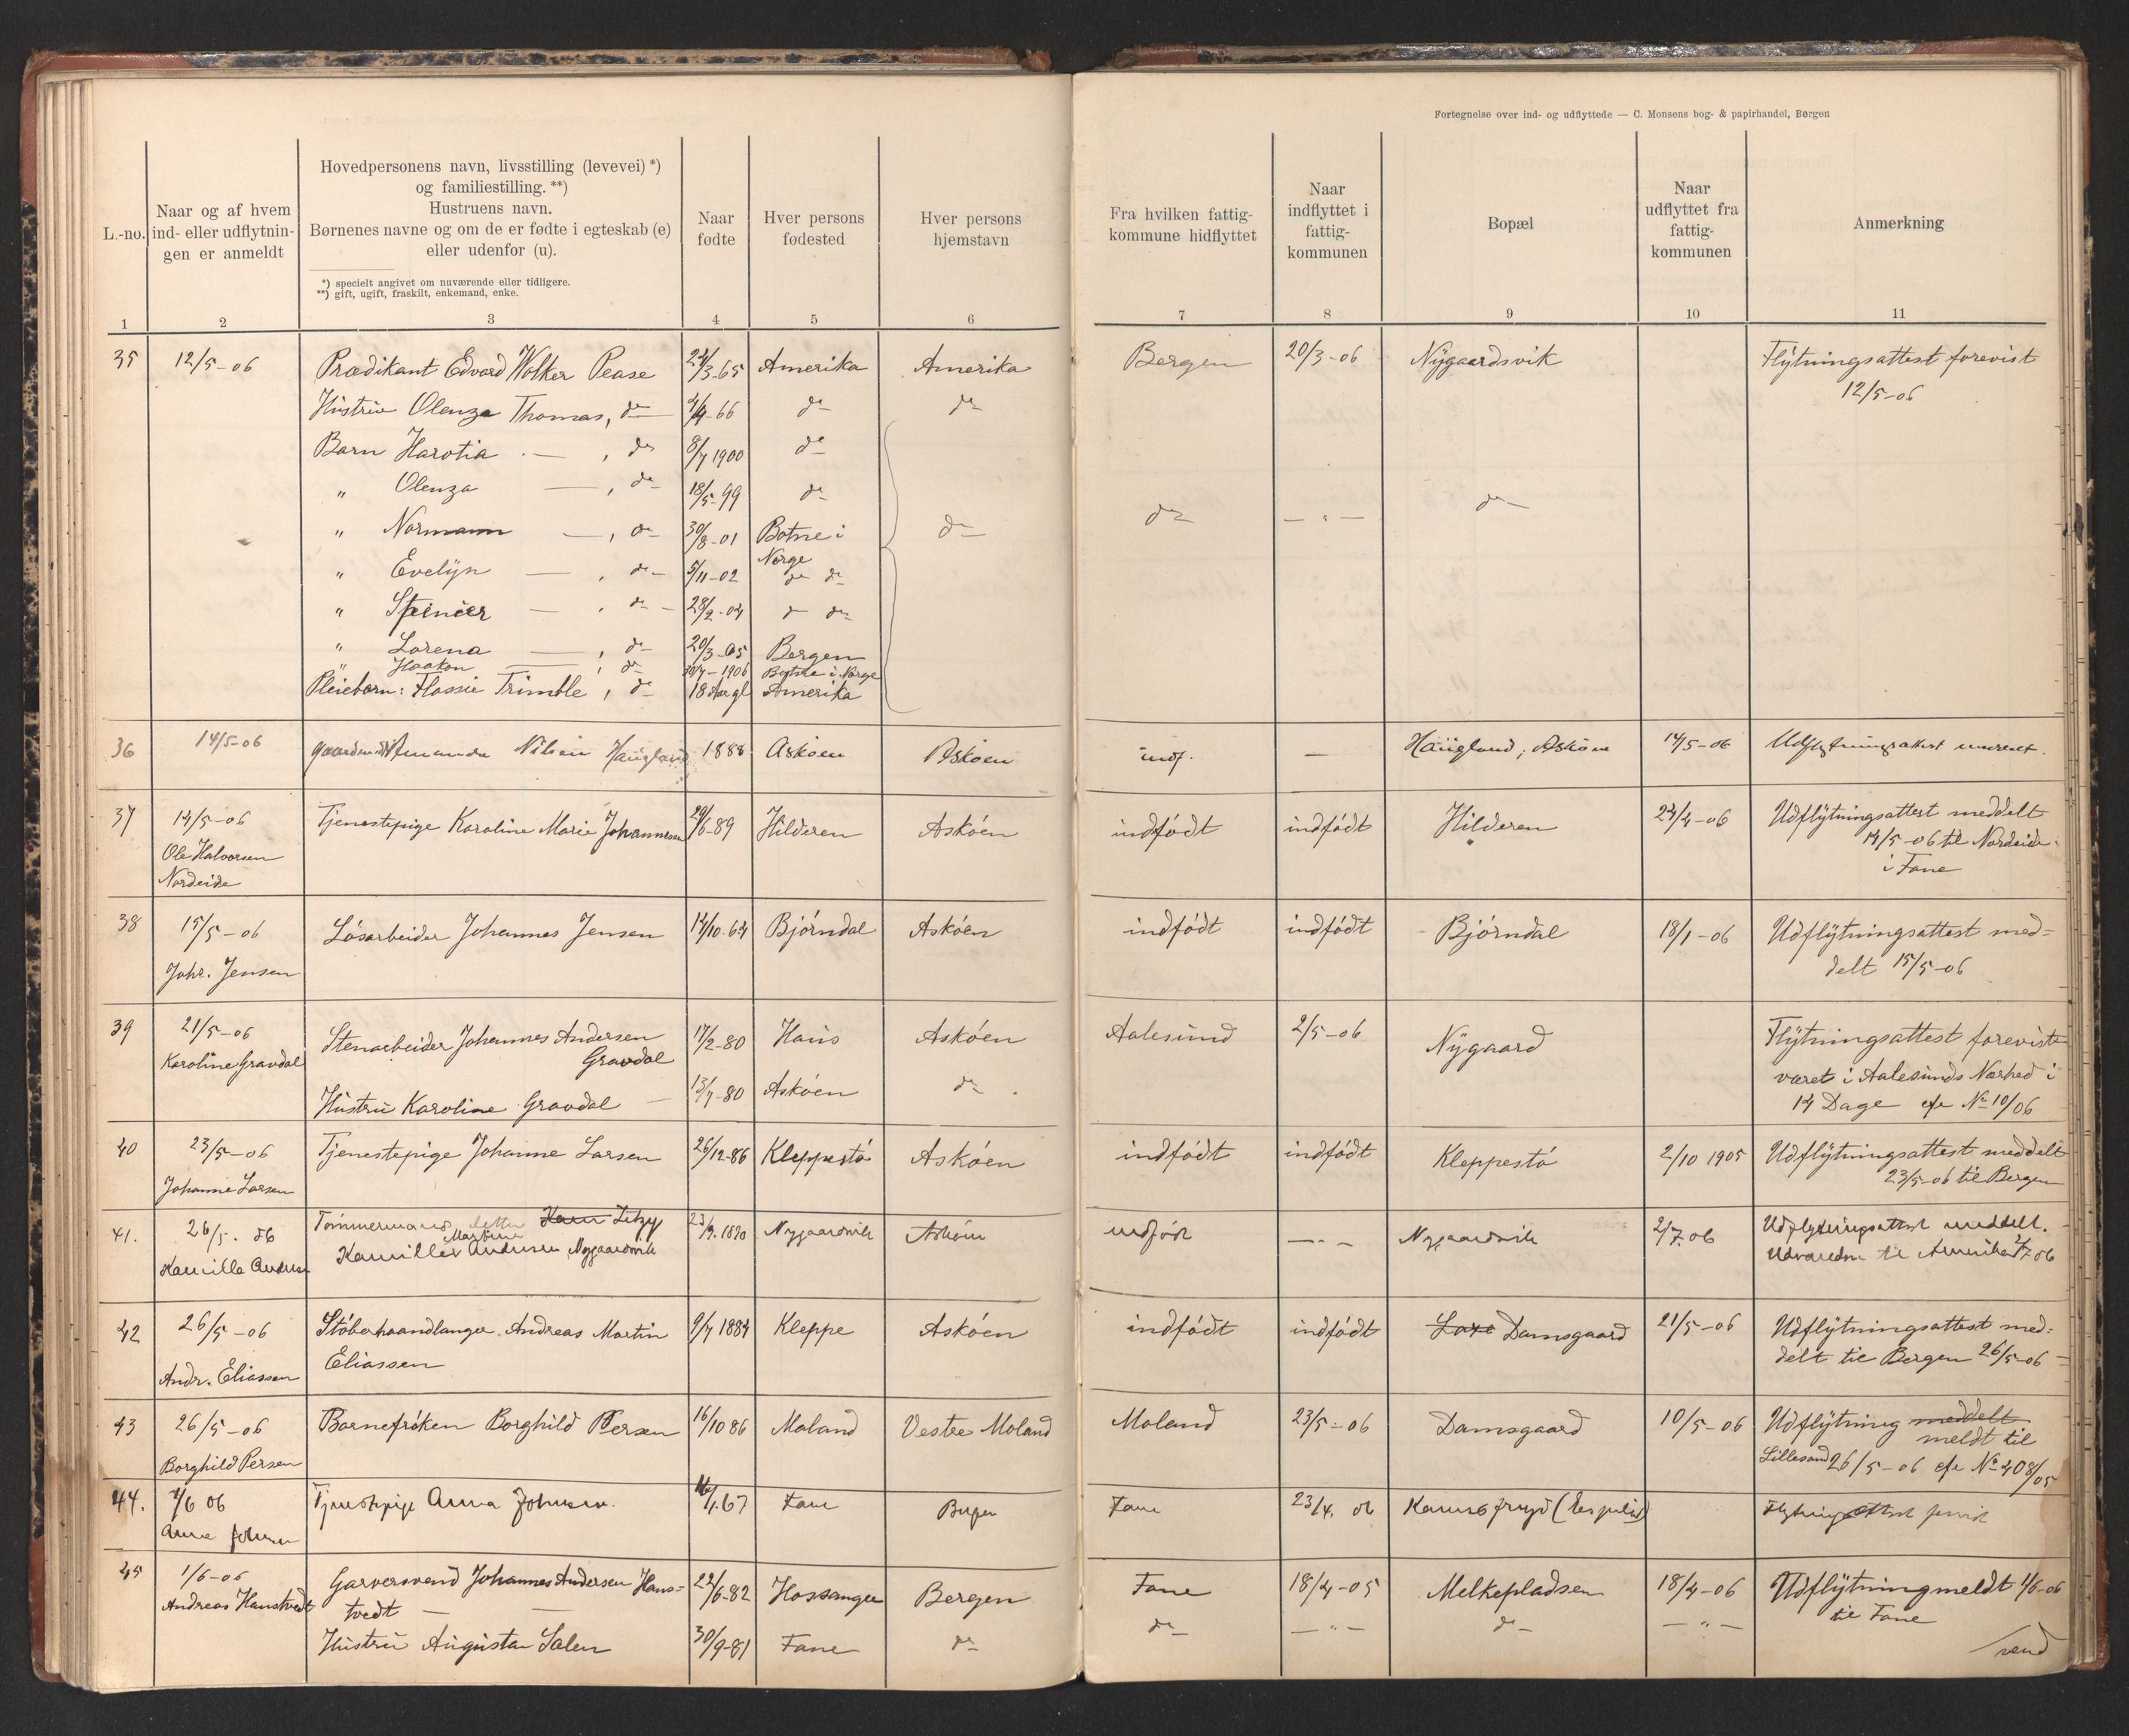 Fortegnelse over ind- og udflyttede — C. Monsens bog- & papirhandel, Bergen
L.-no.
Naar og af hvem
ind- eller udflytnin-
gen er anmeldt
Hovedpersonens navn, livsstilling (levevei) *)
og familiestilling. **)
Hustruens navn.
Børnenes navne og om de er fødte i egteskab (e)
eller udenfor (u).
*) specielt angivet om nuværende eller tidligere.
**) gift, ugift, fraskilt, enkemand, enke.
Naar
fødte
Hver persons
fødested
Hver persons
hjemstavn
Fra hvilken fattig-
kommune hidflyttet
Naar
indflyttet i
fattig-
kommunen
Bopæl
Naar
udflyttet fra
fattig-
kommunen
Anmerkning
1 2 3 4 5 6 7 8 9 10 11
35 12/5-06 Prædikant Edvard Walker Pease 22/3-65 Amerika Amerika Bergen 20/3-06 Nygaardsvik Flytningsattest forevist
12/5-06
Hustru Olenza Thomas, do 4/9-66 do do
Barn Harotia — , do 8/7 1900 do
" Olenza — , do 18/5-99 do
" Normann — , do 30/8-01 Botne i do do — " — do
Norge
" Evelyn — , do 5/11-02 do do
" Speincer — , do 28/2-04 do do
" Lorena — , do 20/3-05 Bergen
" Haakon — , do 30/7-1906 Botne i Norge
Pleiebarn: Flossie Trimble, do 18 Aar gl Amerika
36 14/5-06 Amanda Nilsen Haugland 1888 Askøen Askøen indf. — Haugland, Askøen 14/5-06 Udflytningsattest meddelt.
37 14/5-06 Tjenestepige Karoline Marie Johannesen 29/6-89 Hilderen Askøen indfødt indfødt Hilderen 24/4-06 Udflytningsattest meddelt
14/5-06 til Nordeide
i Fane
Ole Halvorsen
Nordeide
38 15/5-06 Løsarbeider Johannes Jensen 14/10-64 Bjørndal Askøen indfødt indfødt Bjørndal 18/1-06 Udflytningsattest med=
delt 15/5-06
Johs. Jensen
39 21/5-06 Stenarbeider Johannes Andersen 17/2-80 Haus Askøen Aalesund 2/5-06 Nygaard Flytningsattest forevist
Karoline Gravdal Gravdal
været i Aalesunds Nærhed i
Hustru Karoline Gravdal — 13/7-80 Askøen do
14 Dage cfr No 10/06
40 23/5-06 Tjenestepige Johanne Larsen 26/12-86 Kleppestø Askøen indfødt indfødt Kleppestø 2/10 1905 Udflytningsattest meddelt
23/5-06 til Bergen
Johanne Larsen
41. 26/5. 06 Tømmermands datter 23/9.1890 Nygaardsvik Askøen indfødt — Nygaardsvik 2/7.06 Udflytningsattest meddelt.
Martine
Kamilla Andersen, Nygaardsvik
Kamilla Andersen
Udvandrer til Amerika 2/7.06
42 26/5-06 Støberhaandlanger. Andreas Martin 9/7 1884 Kleppe Askøen indfødt indfødt Laxe Damsgaard 21/5-06 Udflytningsattest med=
Eliassen
delt til Bergen 26/5-06
Andr. Eliassen
43 26/5-06 Barnefrøken Borghild Persen 16/10 86 Moland Vestre Moland Moland 23/5-06 Damsgaard 10/5-06 Udflytning meddelt
meldt til
Borghild Persen
Lillesand 26/5-06 cfr No 408/05
44. 1/6 06 Tjenestepige Anna Johnsen. 16/1.67 Fane Bergen Fane 23/4. 06
Anna Johnsen
45 1/6-06 Garversvend Johannes Andersen Haus= 22/6-82 Hossanger Bergen Fane 18/4-05 Melkepladsen 18/4-06 Udflytning meldt 1/6-06
Andreas Haustvedt tvedt
til Fane
Hustru Augusta Salen 30/9-81 Fane do do — " — do — " —
vend